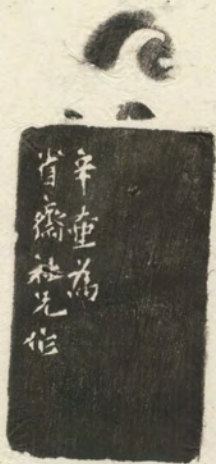 辛壶為
省齋社兄作